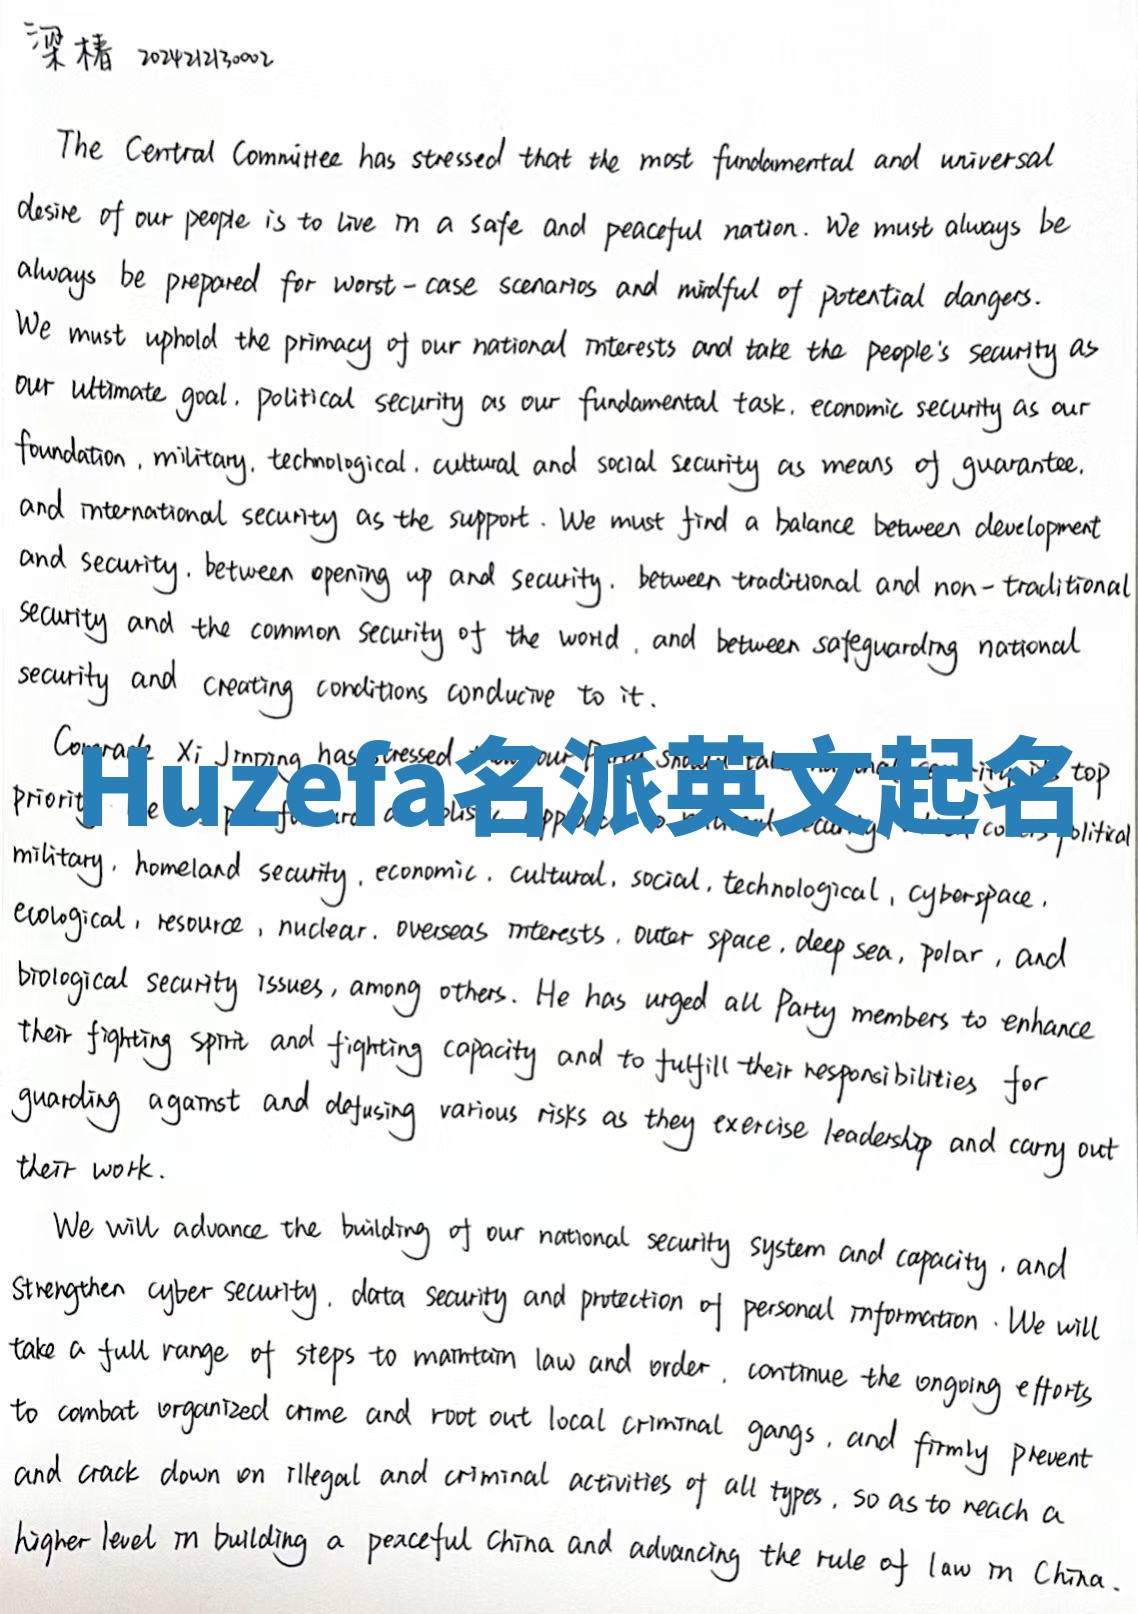 梁椿 2024212130002
The Central Committee has stressed that the most fundamental and universal
desire of our people is to live in a safe and peaceful nation. We must always be
always be prepared for worst-case scenarios and mindful of potential dangers.
We must uphold the primacy of our national interests and take the people's security as
our ultimate goal, political security as our fundamental task, economic security as our
foundation, military, technological, cultural and social security as means of guarantee,
and international security as the support. We must find a balance between development
and security, between opening up and security, between traditional and non-traditional
security and the common security of the world, and between safeguarding national
security and creating conditions conducive to it.
Comrade Xi Jinping has stressed our Party should top
Huzefa名派英文起名
political
military, homeland security, economic, cultural, social, technological, cyberspace,
ecological, resource, nuclear, overseas interests, outer space, deep sea, polar, and
biological security issues, among others. He has urged all Party members to enhance
their fighting spirit and fighting capacity and to fulfill their responsibilities for
guarding against and defusing various risks as they exercise leadership and carry out
their work.
We will advance the building of our national security system and capacity, and
strengthen cyber security, data security and protection of personal information. We will
take a full range of steps to maintain law and order, continue the ongoing efforts
to combat organized crime and root out local criminal gangs, and firmly prevent
and crack down on illegal and criminal activities of all types, so as to reach a
higher level in building a peaceful China and advancing the rule of law in China.